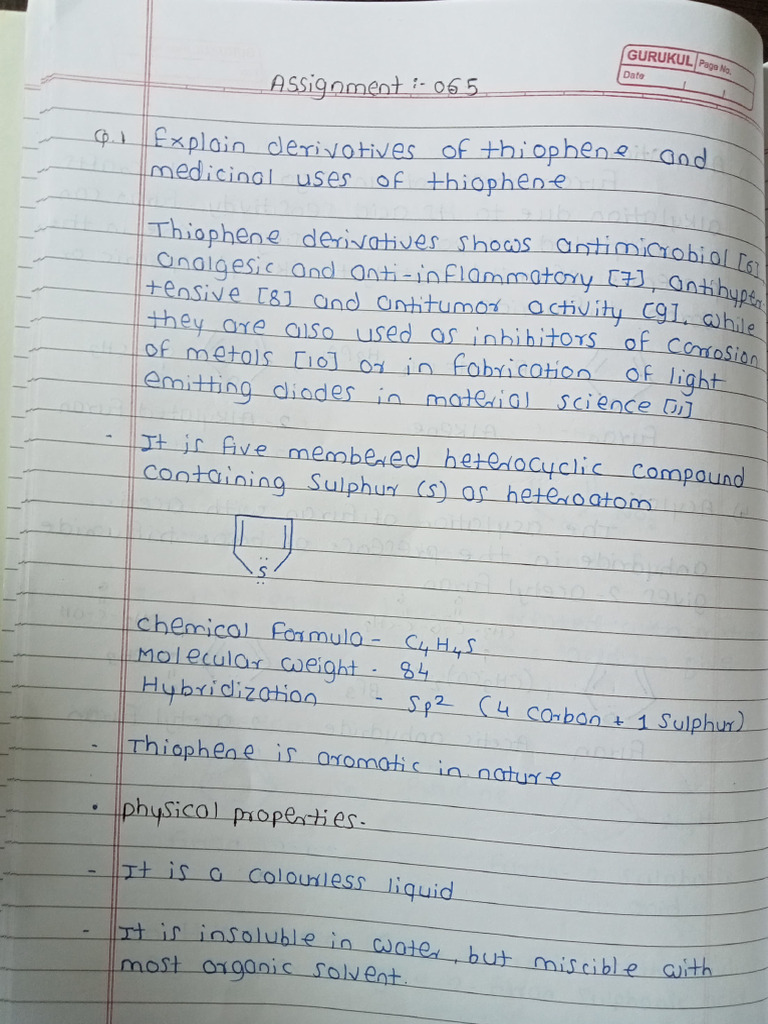 GURUKUL Page No.
Date / /
Assignment :- 065
Q.1 Explain derivatives of thiophene and
medicinal uses of thiophene
Thiophene derivatives shows antimicrobial [6]
analgesic and anti-inflammatory [7], antihyper-
tensive [8] and antitumor activity [9], while
they are also used as inhibitors of corrosion
of metals [10] or in fabrication of light
emitting diodes in material science [11]
- It is five membered heterocyclic compound
containing Sulphur (S) as heteroatom
S
chemical formula - C₄H₄S
Molecular weight - 84
Hybridization - Sp² (4 carbon + 1 Sulphur)
- Thiophene is aromatic in nature
• physical properties.
- It is a colourless liquid
- It is insoluble in water, but miscible with
most organic solvent.